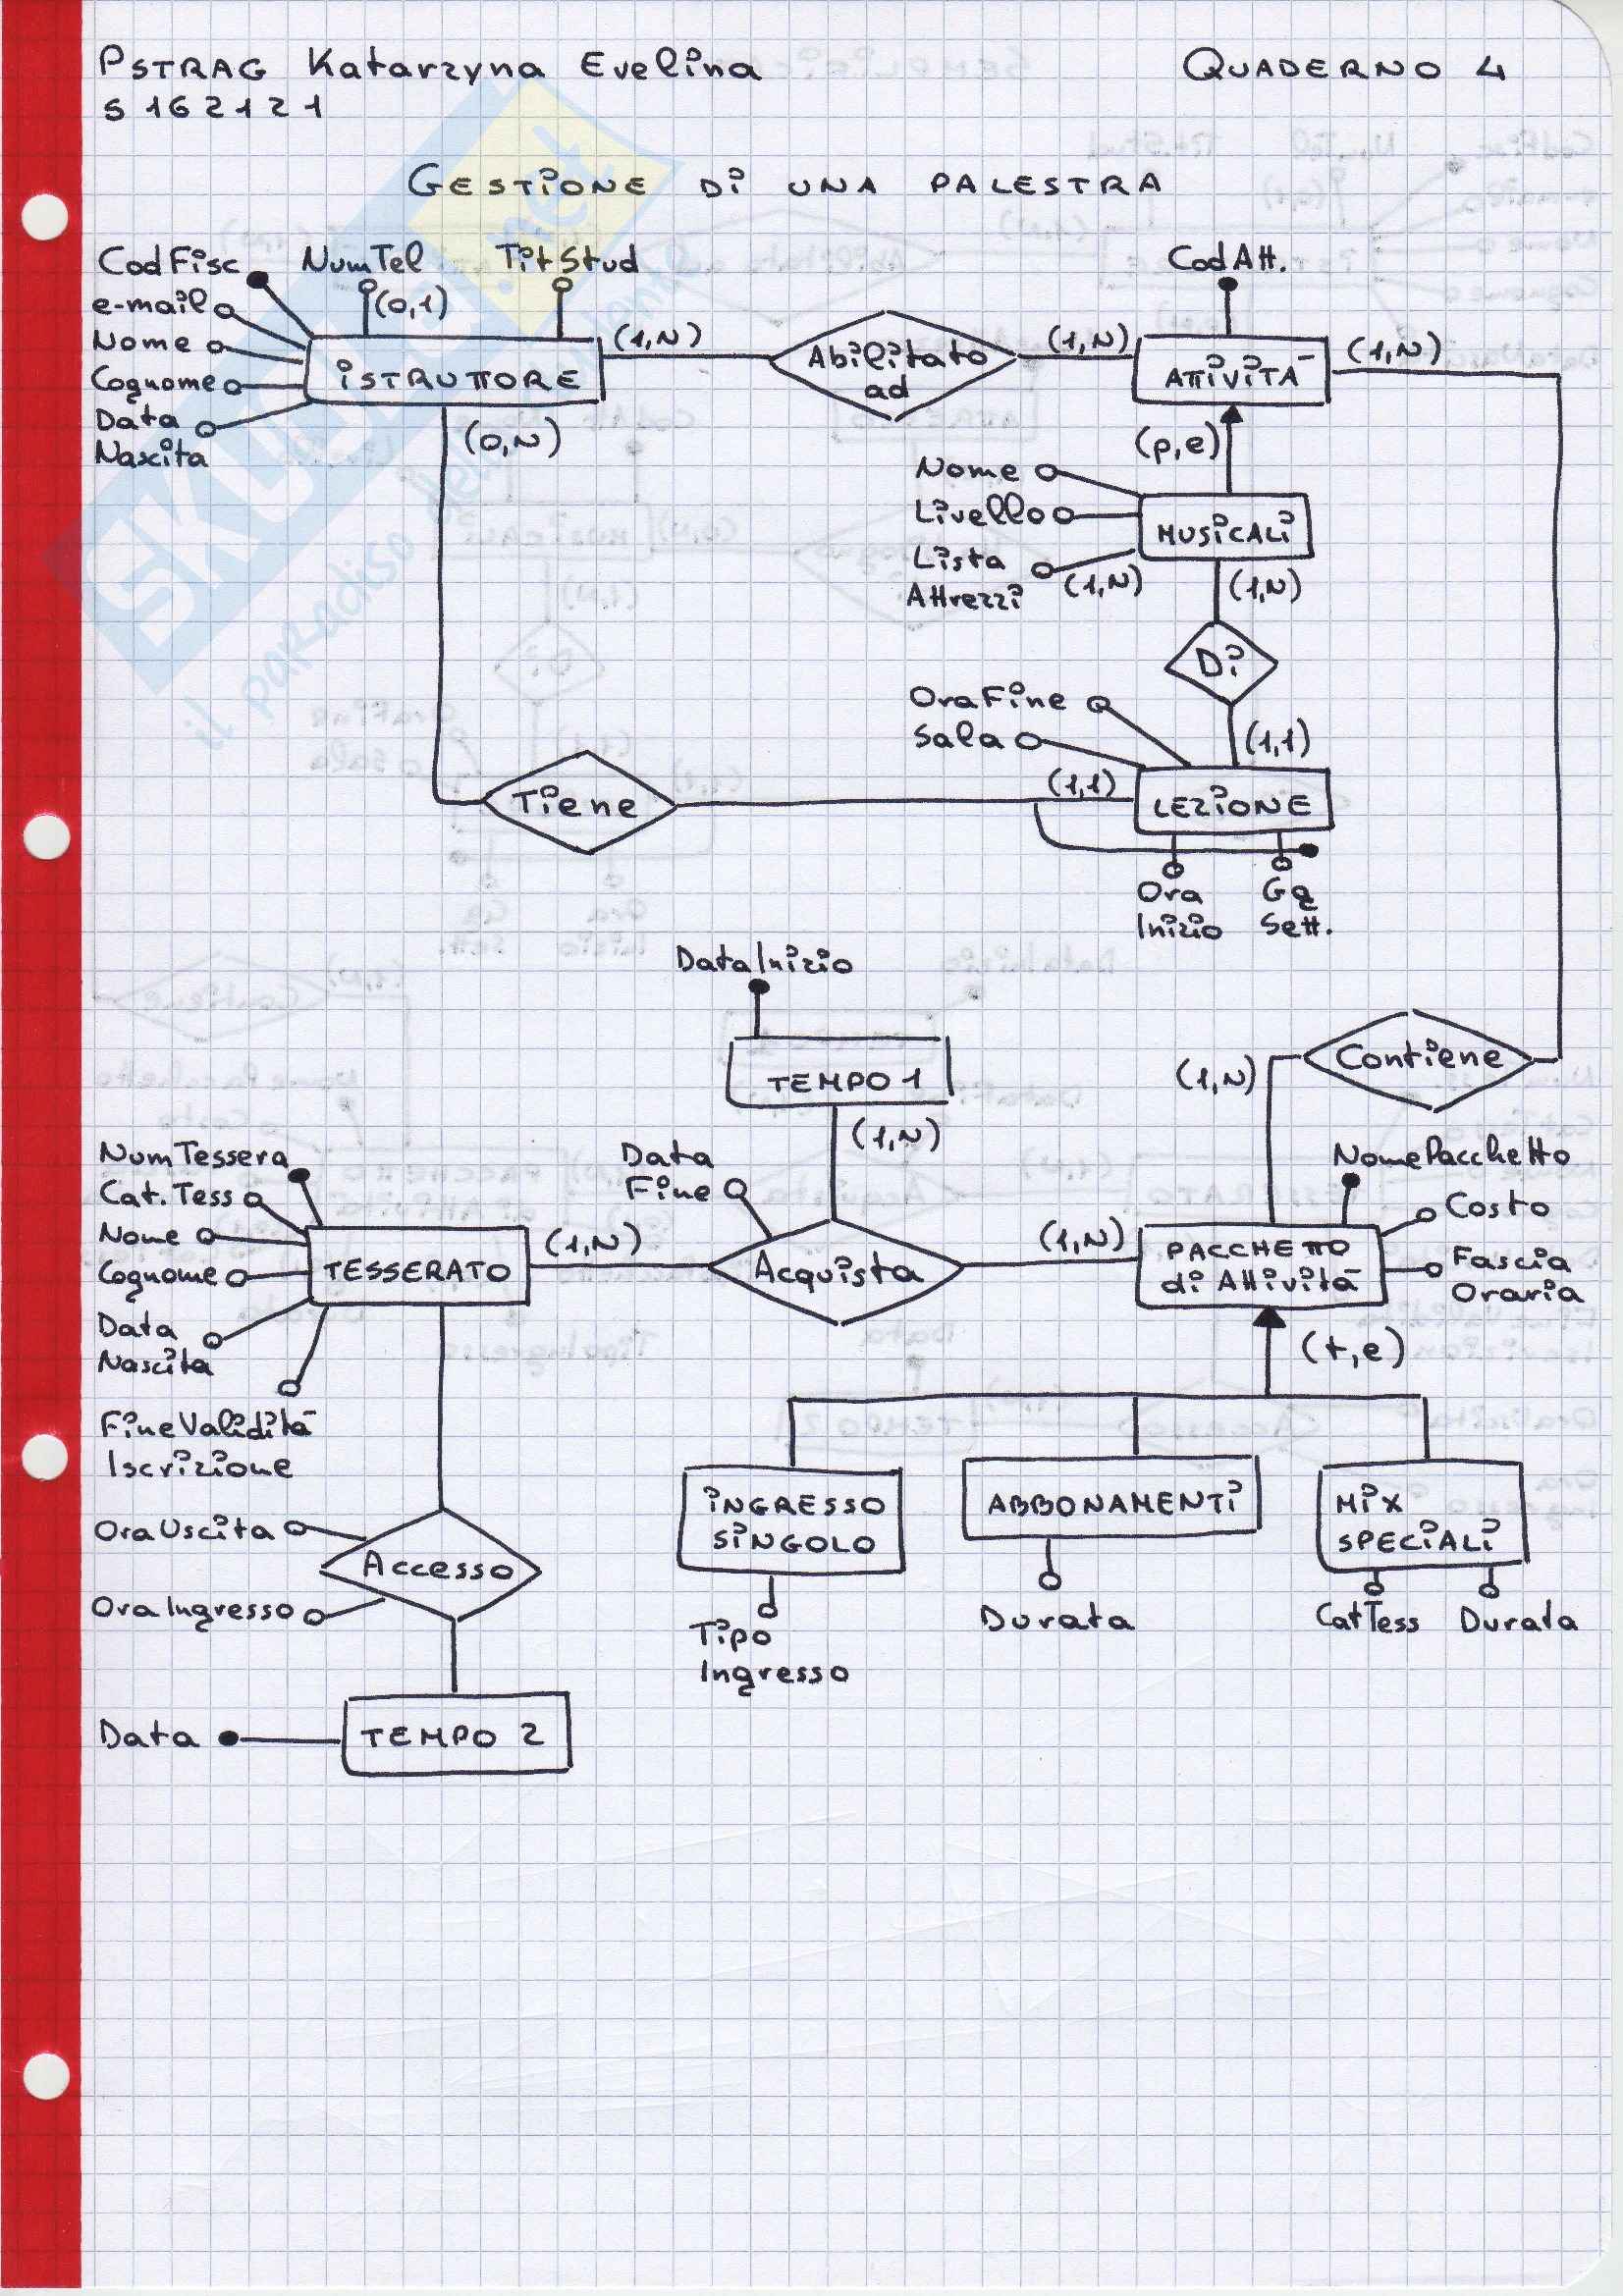 PSTRAG Katarzyna Evelina
QUADERNO 4
S162121
GESTIONE DI UNA PALESTRA
CodFisc
NumTel
TitStud
CodAtt.
e-mail
(0,1)
Nome
(1,N)
Abilitato
ad
(1,N)
(1,N)
Cognome
ISTRUTTORE
ATTIVITÀ
Data
Nascita
(0,N)
(p,e)
Nome
Livello
MUSICALI
Lista
Attrezzi
(1,N)
(1,N)
Di
OraFine
Sala
(1,1)
Tiene
(1,1)
LEZIONE
Ora
Inizio
Gg
Sett.
DataInizio
TEMPO 1
(1,N)
Contiene
(1,N)
NumTessera
Data
Fine
NomePacchetto
Cat.Tess
Costo
Nome
(1,N)
(1,N)
Cognome
TESSERATO
Acquista
PACCHETTO
di Attività
Fascia
Oraria
Data
Nascita
(t,e)
FineValidità
Iscrizione
INGRESSO
SINGOLO
ABBONAMENTI
MIX
SPECIALI
OraUscita
Accesso
OraIngresso
Tipo
Ingresso
Durata
CatTess
Durata
Data
TEMPO 2
SKUOLA.net
il paradiso dello studente